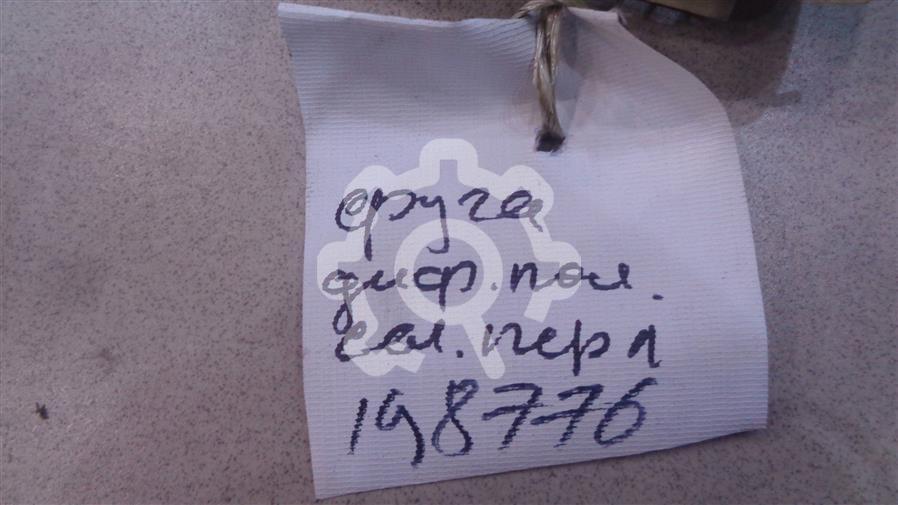 фуга
диф. пол.
сал. пер л
198776